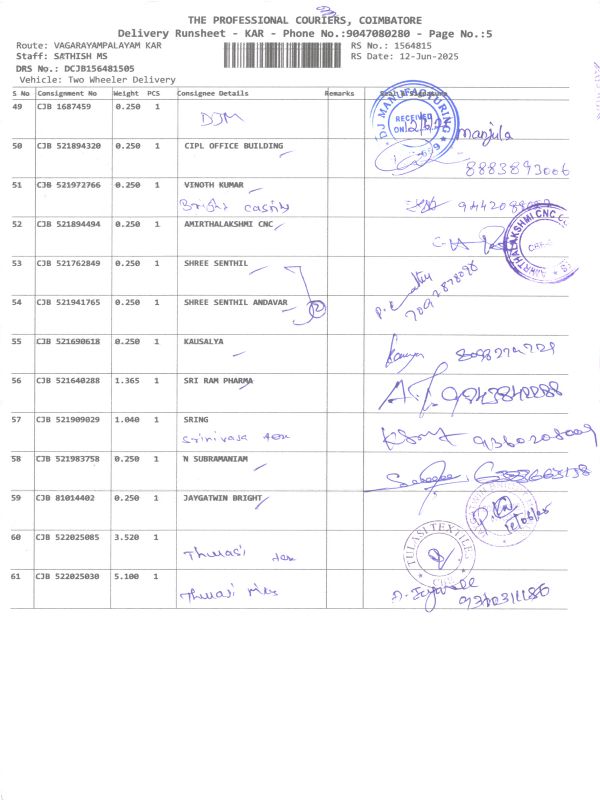 THE PROFESSIONAL COURIERS, COIMBATORE
Delivery Runsheet - KAR - Phone No.:9047080280 - Page No.:5
Route: VAGARAYAMPALAYAM KAR RS No.: 1564815
Staff: SATHISH MS RS Date: 12-Jun-2025
DRS No.: DCJB156481505
Vehicle: Two Wheeler Delivery
S No Consignment No Weight PCS Consignee Details Remarks
49 CJB 1687459 0.250 1
DJM
DJ MANUFACTURING
RECEIVED
ON
Manjula
50 CJB 521894320 0.250 1 CIPL OFFICE BUILDING
8883893006
51 CJB 521972766 0.250 1 VINOTH KUMAR
Bright
52 CJB 521894494 0.250 1 AMIRTHALAKSHMI CNC
AMIRTHALAKSHMI CNC
53 CJB 521762849 0.250 1 SHREE SENTHIL
54 CJB 521941765 0.250 1 SHREE SENTHIL ANDAVAR
2
55 CJB 521690618 0.250 1 KAUSALYA
56 CJB 521640288 1.365 1 SRI RAM PHARMA
57 CJB 521909029 1.040 1 SRING
Srinivasa tex
58 CJB 521983758 0.250 1 N SUBRAMANIAM
59 CJB 81014402 0.250 1 JAYGATWIN BRIGHT
60 CJB 522025085 3.520 1
Thulasi tex
TULASI TEXTILES
61 CJB 522025030 5.100 1
Thulasi